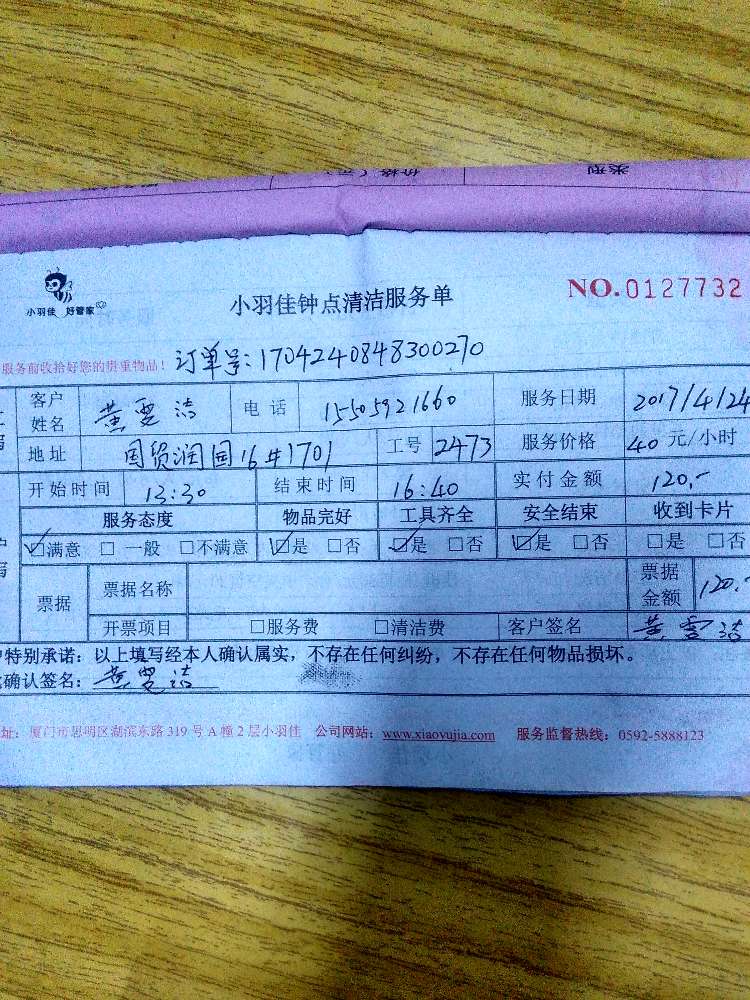 价格(元) 类型
小羽佳 好管家
小羽佳钟点清洁服务单
NO.0127732
服务前收拾好您的贵重物品! 订单号:1704240848300270
客户姓名 黄雯洁 电话 15505921660 服务日期 2017/4/24
地址 国贸润园16#1701 工号 2473 服务价格 40元/小时
开始时间 13:30 结束时间 16:40 实付金额 120.-
服务态度 物品完好 工具齐全 安全结束 收到卡片
☑满意 □一般 □不满意 ☑是 □否 ☑是 □否 ☑是 □否 □是 □否
票据 票据名称 票据金额 120.-
开票项目 □服务费 □清洁费 客户签名 黄雯洁
特别承诺:以上填写经本人确认属实,不存在任何纠纷,不存在任何物品损坏。
确认签名:黄雯洁
址:厦门市思明区湖滨东路319号A幢2层小羽佳 公司网站:www.xiaoyujia.com 服务监督热线:0592-5888123